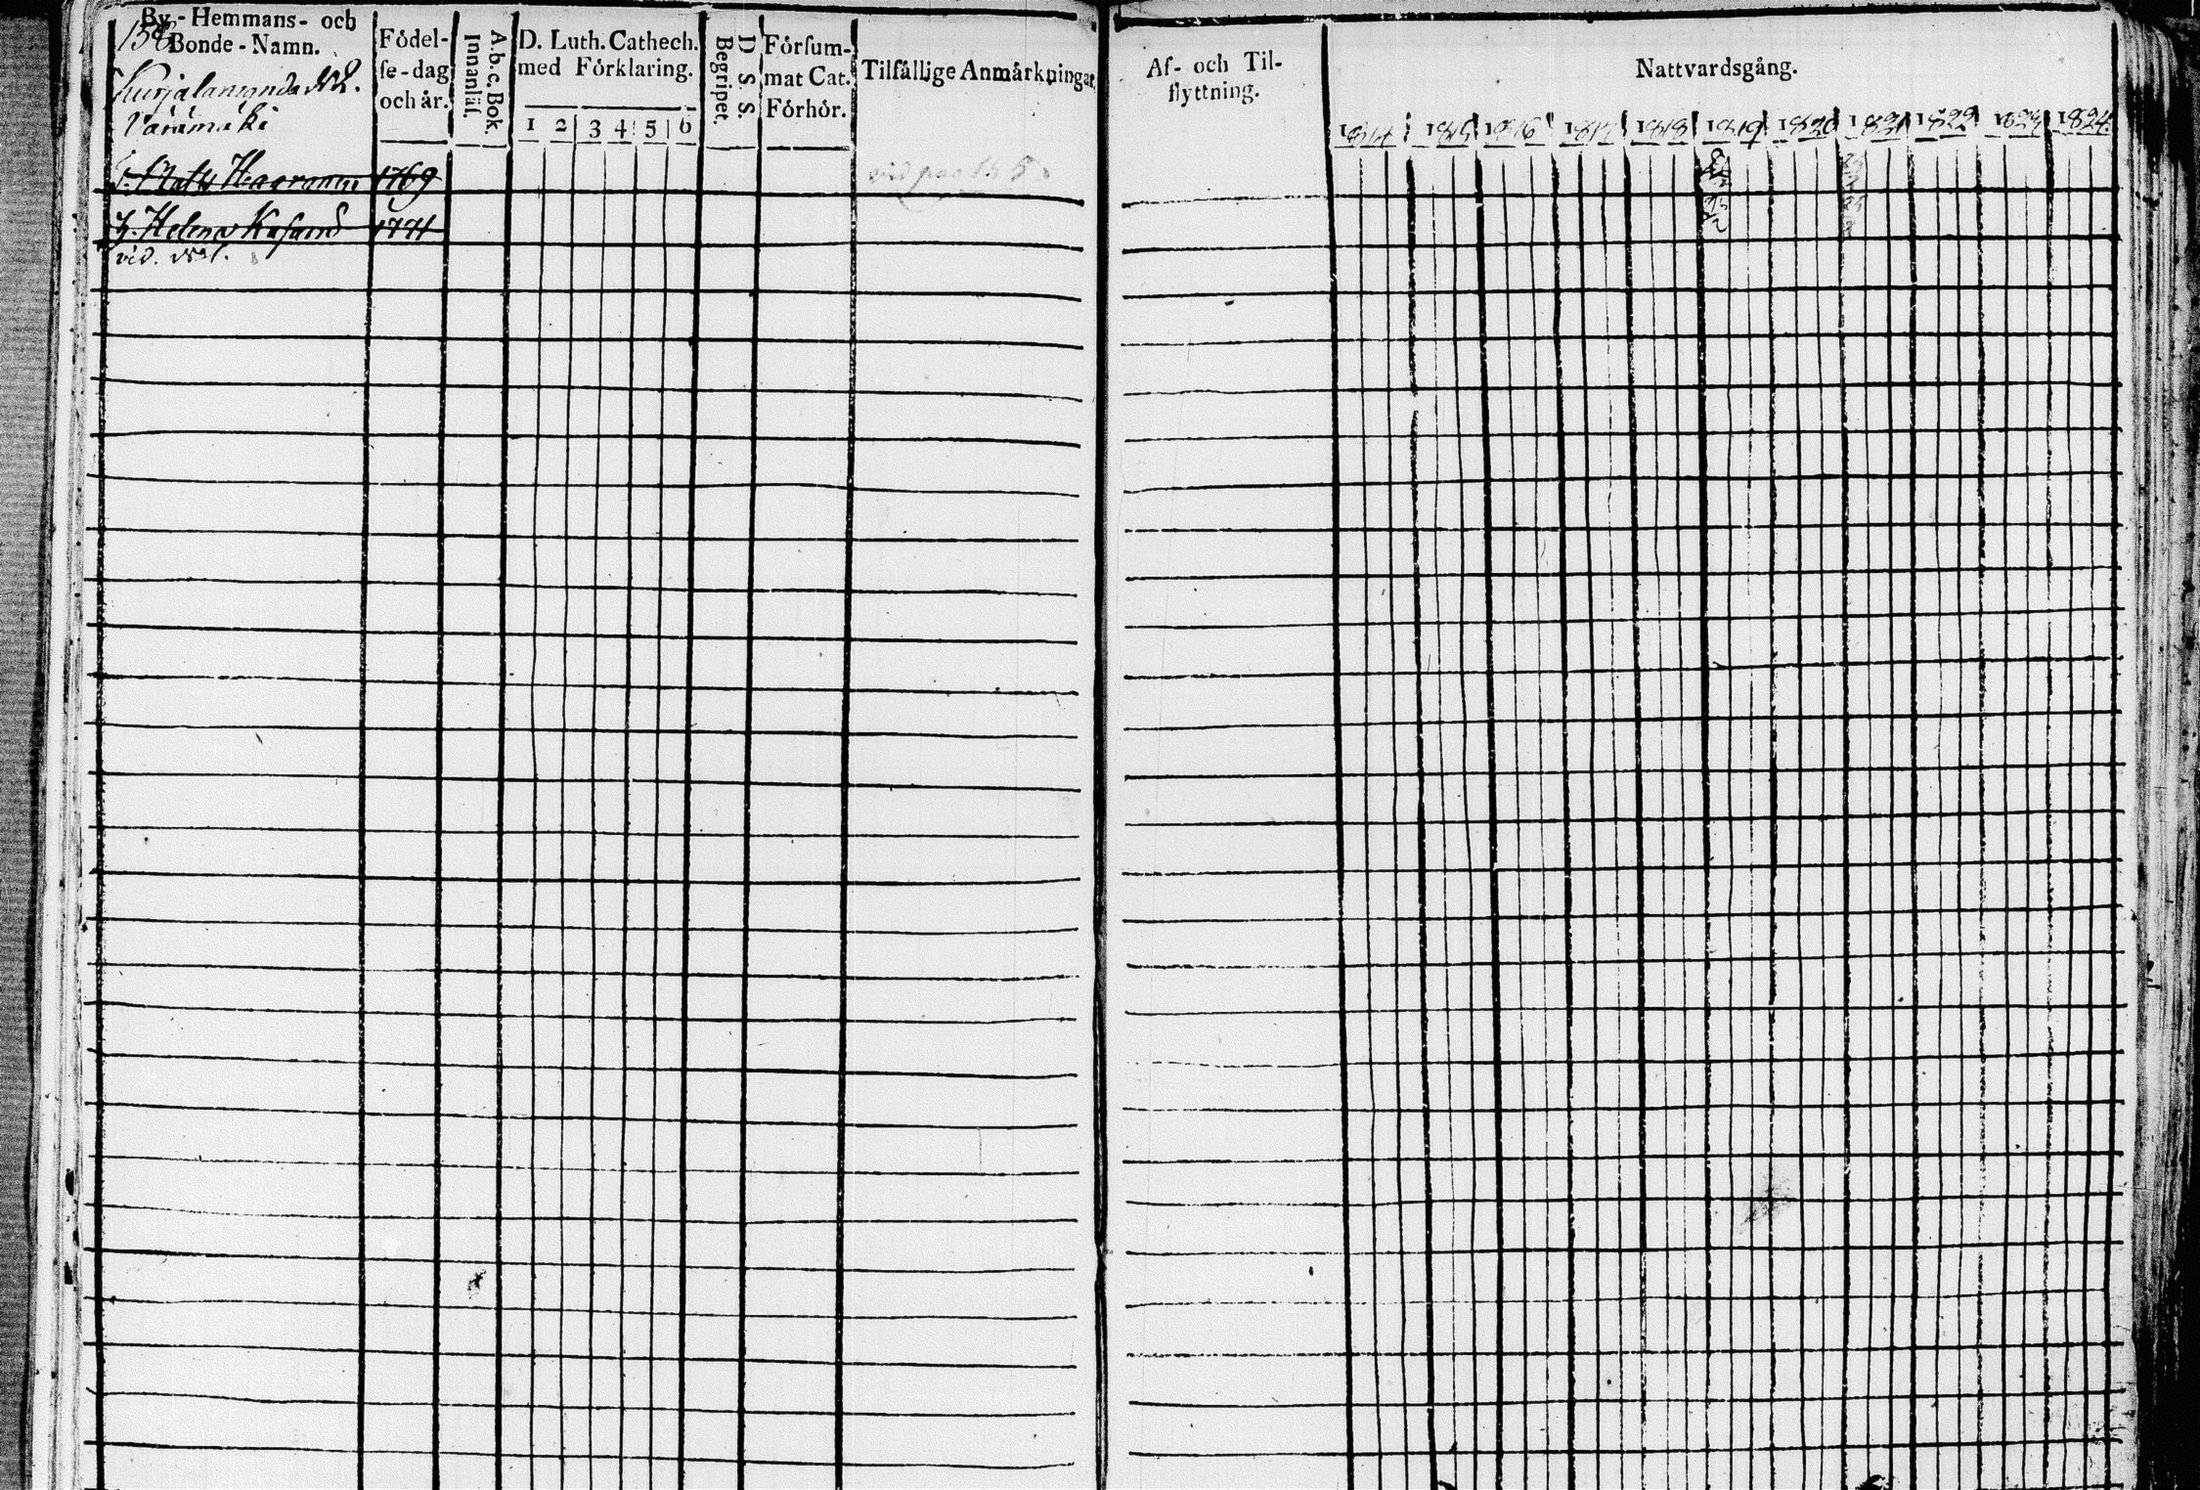 158
By-Hemmans- och
Bonde-Namn.
Födel-
se-dag
och år.
A.b.c. Bok.
Innanläs.
D. Luth. Cathech.
med Förklaring.
1 2 3 4 5 6
D. S. S.
Begripet.
Försum-
mat Cat.
Förhör.
Tilfällige Anmärkningar
Af- och Til-
flyttning.
Nattvardsgång.
1814 1815 1816 1817 1818 1819 1820 1821 1822 1823 1824
N:o 2.
Matts 1769 vid pag 155
H. Helena 1771
vid. N:o 1.